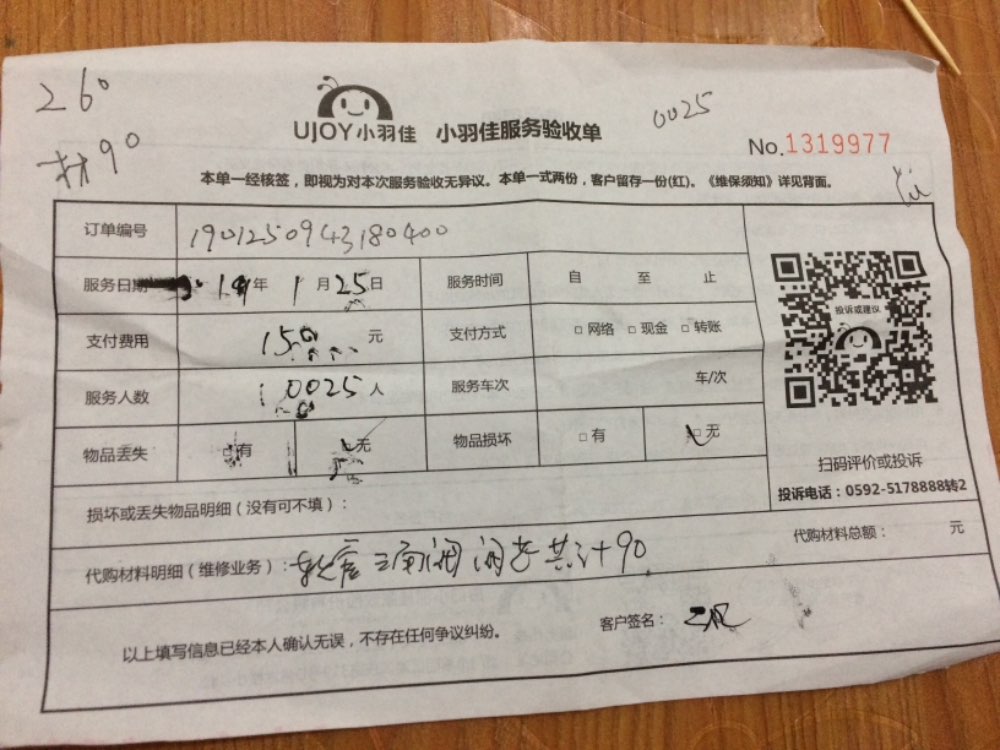 260
材90
UJOY小羽佳 小羽佳服务验收单
0025
No.1319977
本单一经核签，即视为对本次服务验收无异议。本单一式两份，客户留存一份(红)。《维保须知》详见背面。
订单编号 1901250943180400
服务日期 19年 1月25日 服务时间 自 至 止
支付费用 150 元 支付方式 □网络 □现金 □转账
投诉或建议
服务人数 1 0025人 服务车次 车/次
物品丢失 □有 □无 物品损坏 □有 □无
扫码评价或投诉
投诉电话：0592-5178888转2
损坏或丢失物品明细（没有可不填）：
代购材料明细（维修业务）： 三角阀 共计90
代购材料总额： 元
以上填写信息已经本人确认无误，不存在任何争议纠纷。 客户签名：